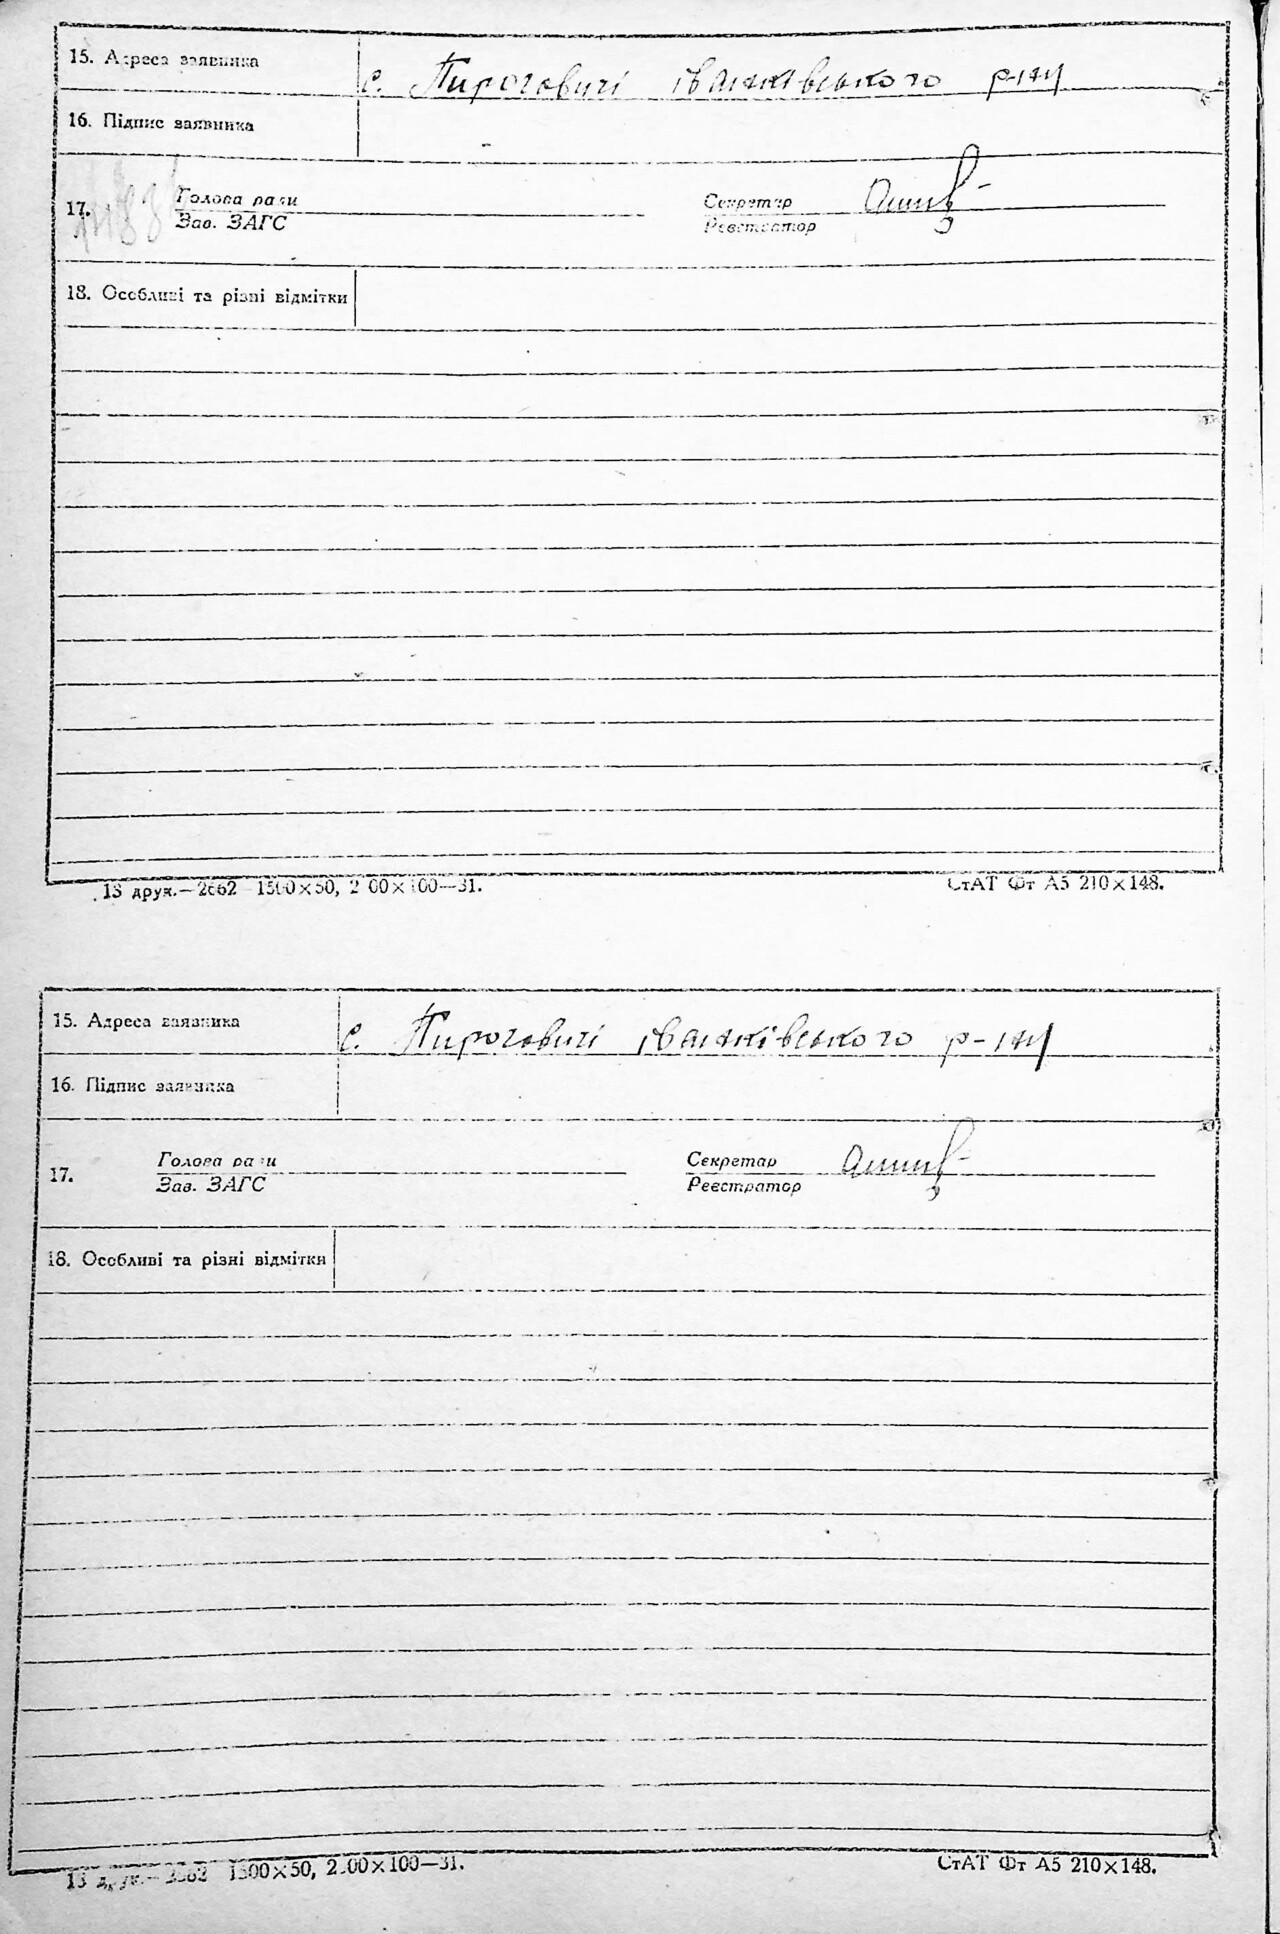 15. Адреса заявника с. Пироговичі іванківського р-ну
16. Підпис заявника
17. Голова ради Секретар
Зав. ЗАГС Реєстратор
18. Особливі та різні відмітки
13 друк.—2662 1500×50, 2 00×100—31. СтАТ Фт А5 210×148.
15. Адреса заявника с. Пироговичі іванківського р-ну
16. Підпис заявника
17. Голова ради Секретар
Зав. ЗАГС Реєстратор
18. Особливі та різні відмітки
13 1500×50, 2.00×100—31. СтАТ Фт А5 210×148.